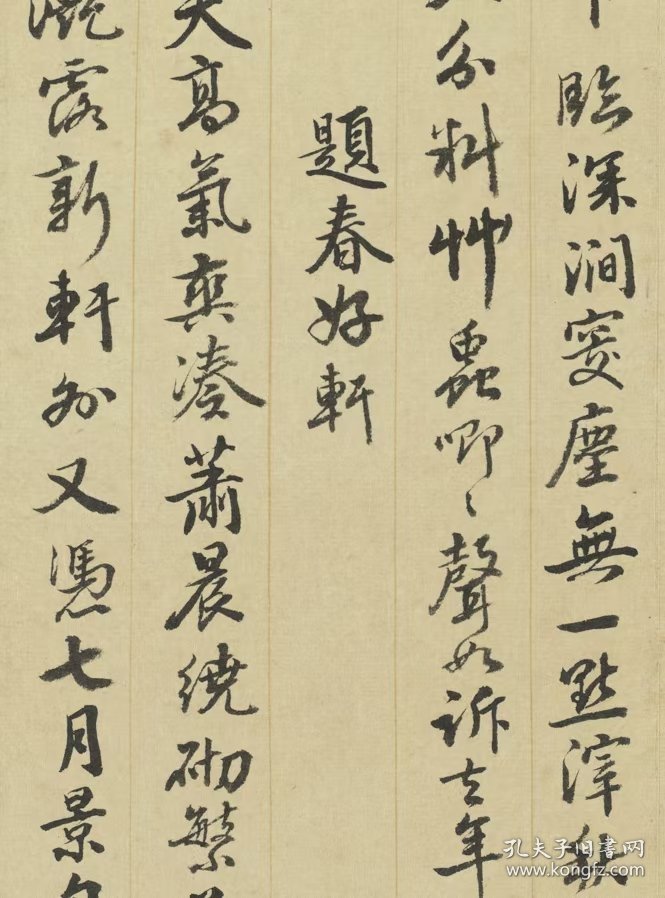 臨深澗窣塵無一點滓秋
分料艸蟲唧〻聲如訴去年
題春好軒
天高氣爽湊蕭晨繞砌繁
露新軒外又憑七月景
孔夫子旧书网
www.kongfz.com